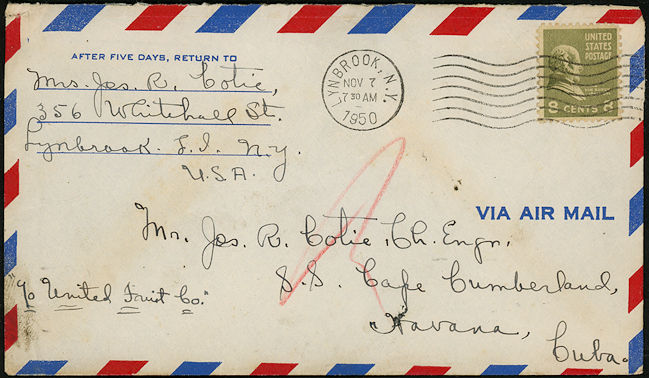 AFTER FIVE DAYS, RETURN TO
Mrs. Jos. R. Cotie,
356 Whitehall St.
Lynbrook. L.I. N.Y.
U.S.A.
LYNBROOK, N.Y.
NOV 7
7 30 AM
1950
UNITED
STATES
POSTAGE
8 CENTS 8
VIA AIR MAIL
Mr. Jos. R. Cotie, Ch. Engr.
S.S. Cape Cumberland,
"c/o United Fruit Co."
Havana,
Cuba.